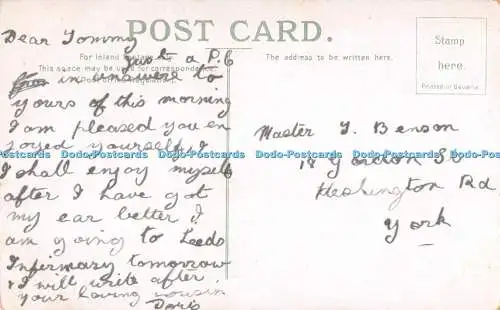 POST CARD.
For Inland Postage only
This space may be used for correspondence
The address to be written here.
Stamp
here.
Printed in Bavaria
Dear Tommy
Just a P.C
in answere to
yours of this morning
I am pleased you en
joyed yourself, &
I shall enjoy myself
after I have got
my ear better I
am going to Leeds
Infirmary tomorrow
& I will write after.
Your loving cousin
Doris
Master T. Benson
18 St
Heslington Rd
York
Dodo-Postcards Dodo-Postcards Dodo-Postcards Dodo-Postcards